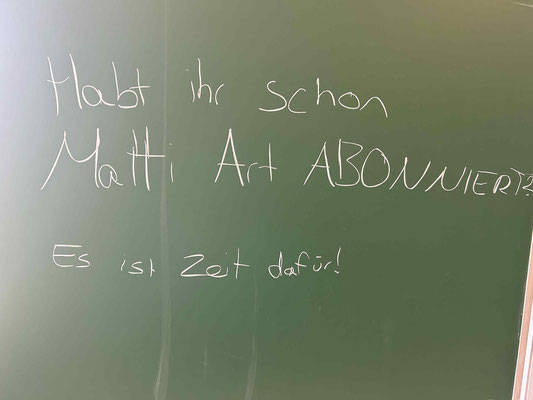 Habt ihr schon
Matti Art ABONNIERT?
Es ist Zeit dafür!